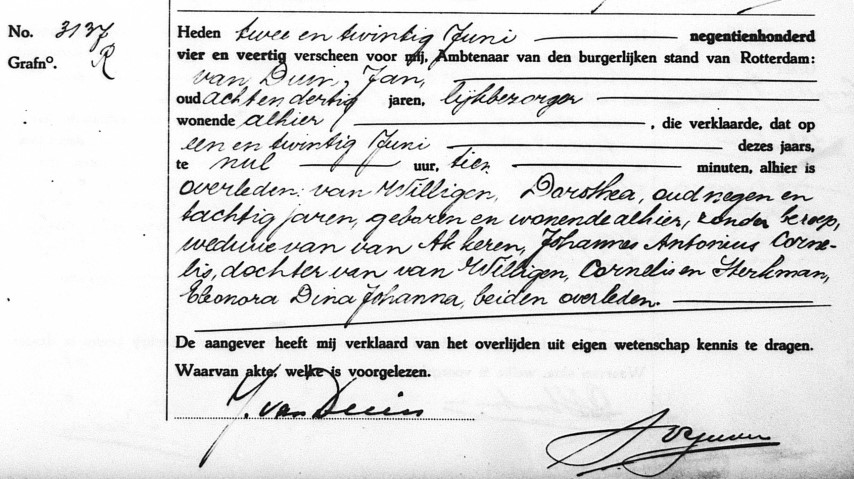 No. 3137
Grafno. R
Heden twee en twintig Juni negentienhonderd
vier en veertig verscheen voor mij, Ambtenaar van den burgerlijken stand van Rotterdam:
van Duin, Jan,
oud achtendertig jaren, lijkbezorger
wonende alhier, die verklaarde, dat op
een en twintig Juni dezes jaars,
te nul uur, tien minuten, alhier is
overleden: van Willigen, Dorothea, oud negen en
tachtig jaren, geboren en wonende alhier, zonder beroep,
weduwe van van Akkeren, Johannes Antonius Corne-
lis, dochter van van Willigen, Cornelis en Sterkman,
Eleonora Dina Johanna, beiden overleden.
De aangever heeft mij verklaard van het overlijden uit eigen wetenschap kennis te dragen.
Waarvan akte, welke is voorgelezen.
J. van Duin